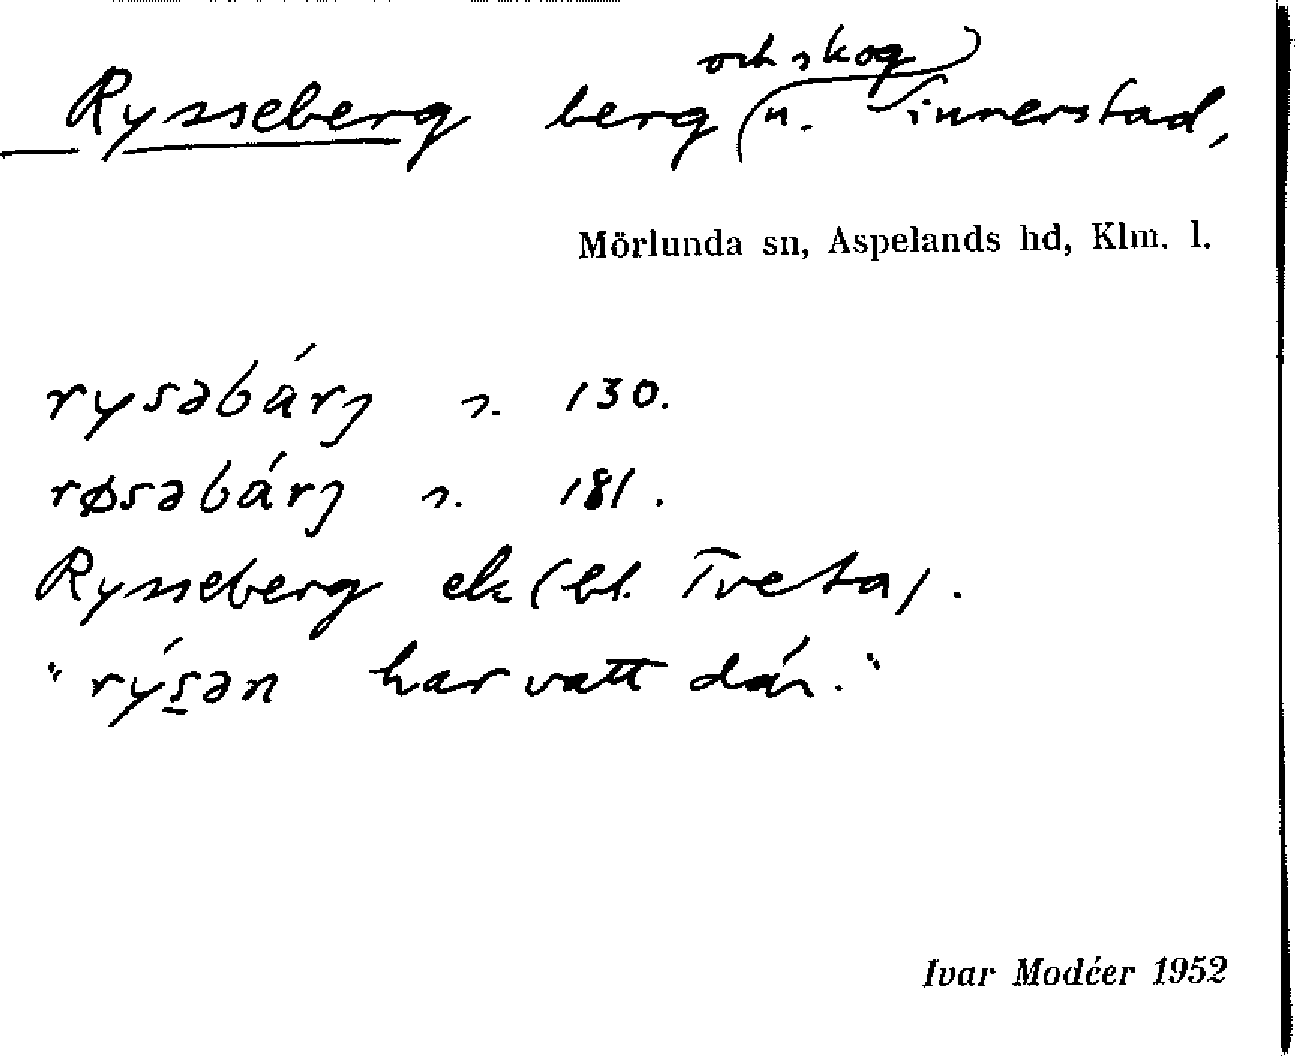 Rysseberg berg och skog n. Sinnerstad,
Mörlunda sn, Aspelands hd, Klm. l.
rysəbárj s. 130.
røsəbárj s. 181.
Rysseberg ek (bl. Tveta).
"rýsən har vatt där."
Ivar Modéer 1952